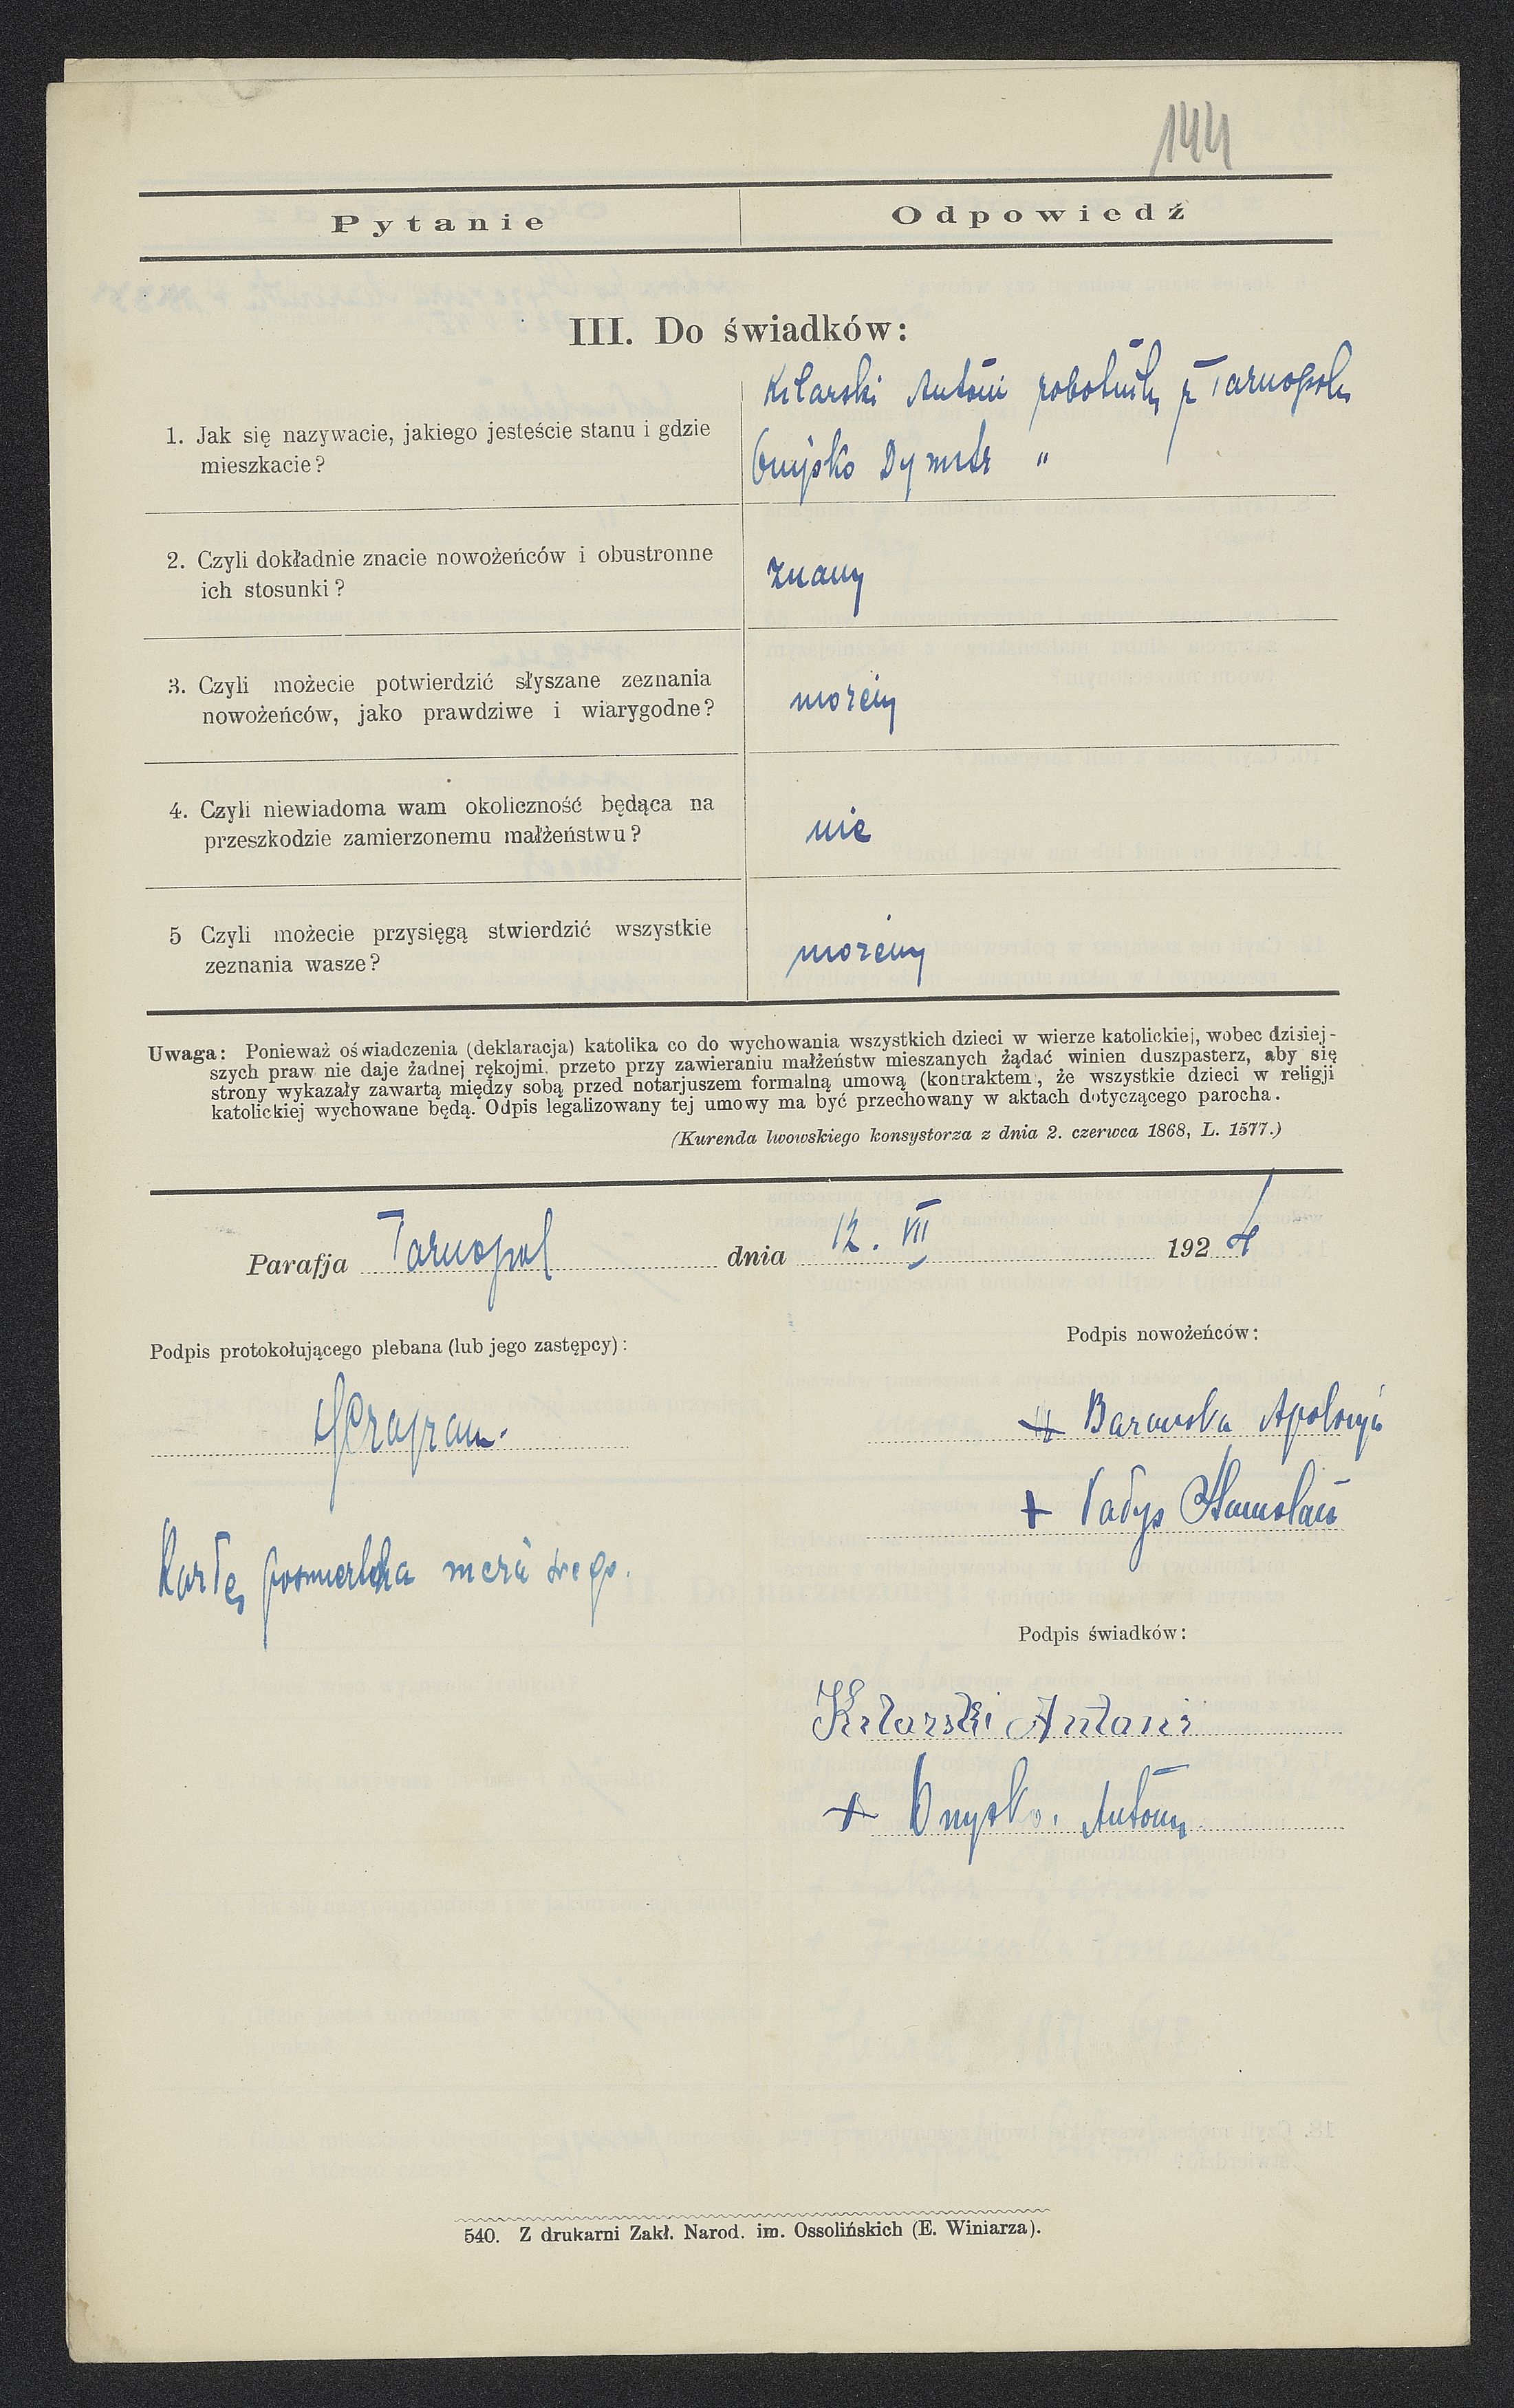 144
Pytanie Odpowiedź
III. Do świadków:
1. Jak się nazywacie, jakiego jesteście stanu i gdzie
mieszkacie?
Kilarski Antoni robotnik z Tarnopola
Dymitr "
2. Czyli dokładnie znacie nowożeńców i obustronne
ich stosunki?
znamy
3. Czyli możecie potwierdzić słyszane zeznania
nowożeńców, jako prawdziwe i wiarygodne?
możemy
4. Czyli niewiadoma wam okoliczność będąca na
przeszkodzie zamierzonemu małżeństwu?
nie
5 Czyli możecie przysięgą stwierdzić wszystkie
zeznania wasze?
możemy
Uwaga: Ponieważ oświadczenia (deklaracja) katolika co do wychowania wszystkich dzieci w wierze katolickiej, wobec dzisiej-
szych praw nie daje żadnej rękojmi, przeto przy zawieraniu małżeństw mieszanych żądać winien duszpasterz, aby się
strony wykazały zawartą między sobą przed notarjuszem formalną umową (kontraktem, że wszystkie dzieci w religji
katolickiej wychowane będą. Odpis legalizowany tej umowy ma być przechowany w aktach dotyczącego parocha.
(Kurenda lwowskiego konsystorza z dnia 2. czerwca 1868, L. 1577.)
Parafja Tarnopol dnia 12. VII 1924
Podpis protokołującego plebana (lub jego zastępcy):
Podpis nowożeńców:
+ Barowska Apolonja
+ Stanisław
Kartę pośmiertna
Podpis świadków:
Kilarski Antoni
+ Onysko. Antoni
540. Z drukarni Zakł. Narod. im. Ossolińskich (E. Winiarza).